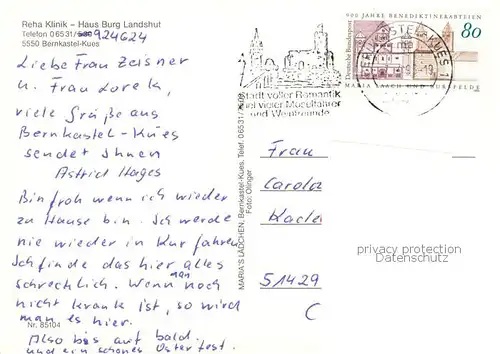 Reha Klinik – Haus Burg Landshut
Telefon 06531/ 924624
5550 Bernkastel-Kues
Liebe Frau Zeisner
u. Frau Lorek,
viele Grüße aus
Bernkastel-Kues
sendet Ihnen
Astrid Hages
Bin froh wenn ich wieder
zu Hause bin. Ich werde
nie wieder in Kur fahren
Ich finde das hier alles
schrecklich. Wenn man noch
nicht krank ist, so wird
man es hier.
Nr. 85104
Also bis auf bald.
und ein schönes Osterfest.
MARIA'S LÄDCHEN, Bernkastel-Kues, Telef. 06531/
Foto: Olinger
Stadt voller Romantik
viel vieler Moselfahrer
und Weinfreunde
900 JAHRE BENEDIKTINERABTEIEN
80
Deutsche Bundespost
MARIA LAACH UND BURSFELDE
BERNKASTEL-KUES 1
Frau
Carola
51429
privacy protection
Datenschutz